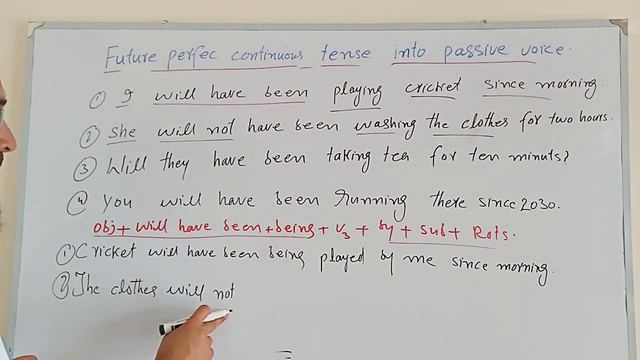 Future perfec continuous tense into passive voice.
① I will have been playing cricket since morning.
② She will not have been washing the clothes for two hours.
③ Will they have been taking tea for ten minuts?
④ You will have been running there since 2030.
Obj + will have been + being + V3 + by + sub + Rots.
① Cricket will have been being played by me since morning.
② The clothes will not